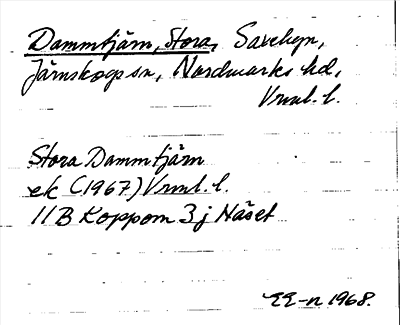 Dammtjärn, Stora, Savekyn,
Järnskogs sn, Nordmarks hd,
Vrml. l.
Stora Dammtjärn
ek (1967) Vrml. l.
11B Koppom 3j Näset
EE-n 1968.